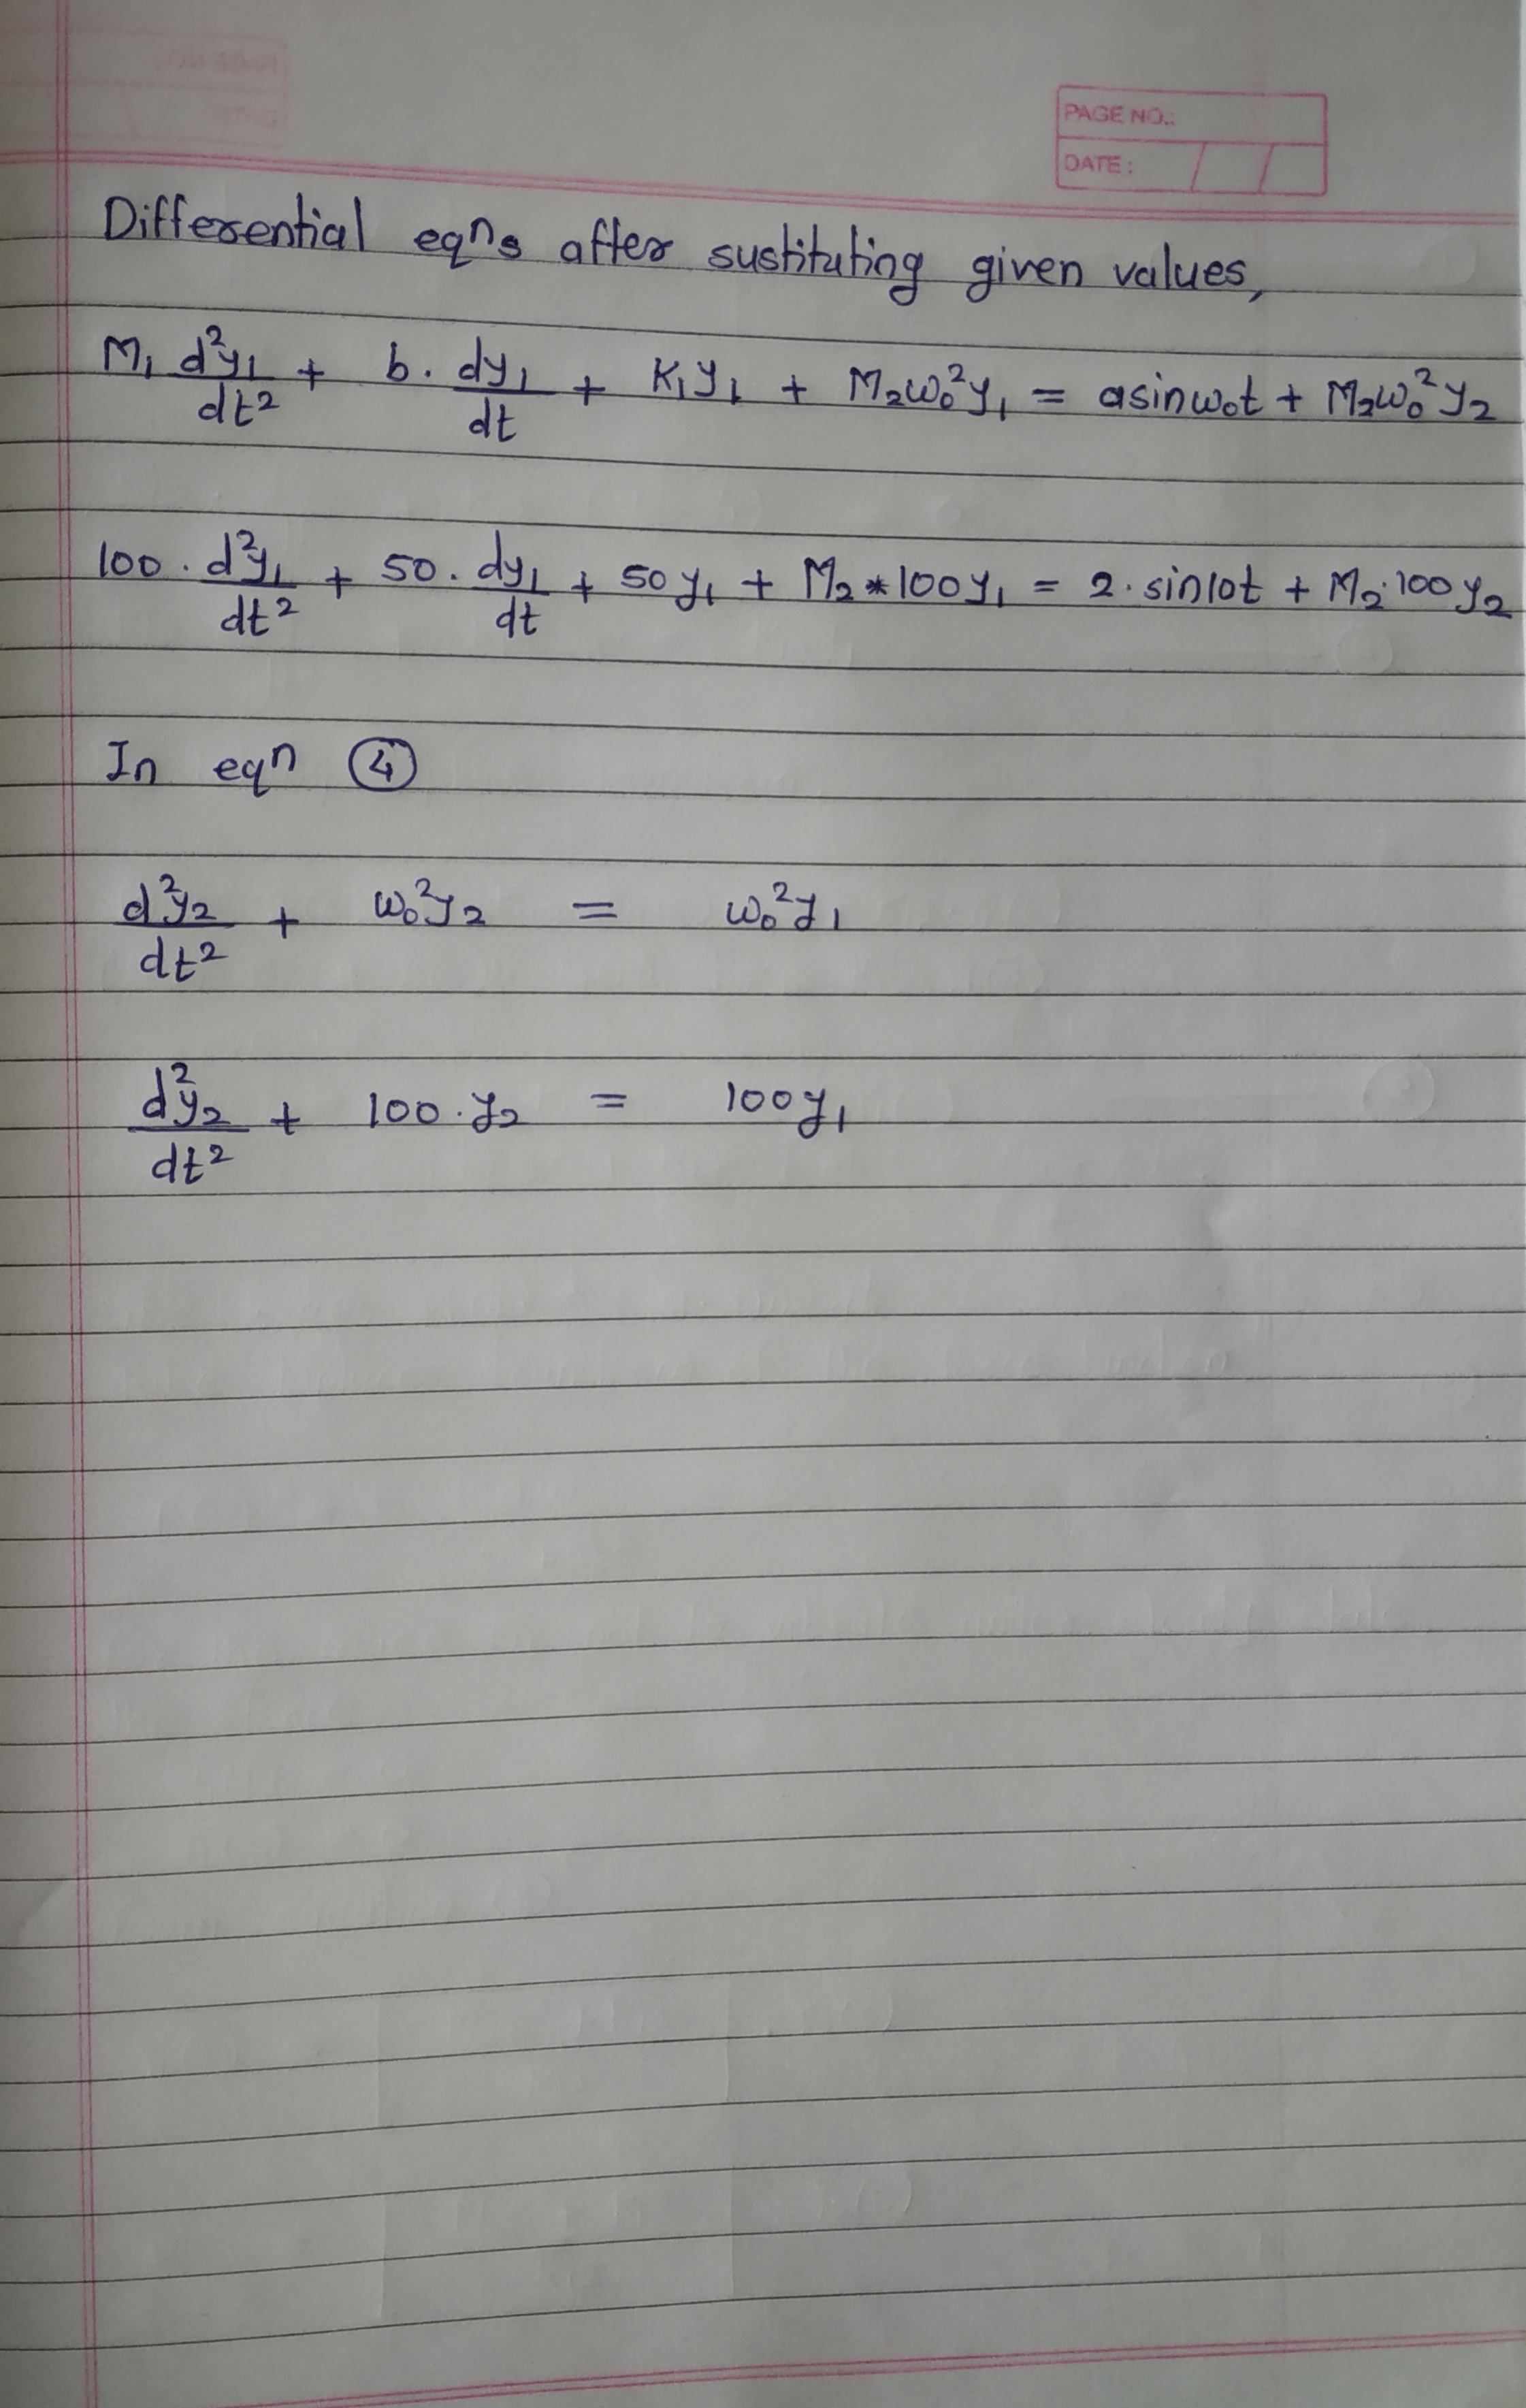 PAGE NO.:
DATE: / /
Differential eqⁿs after sustituting given values,
M₁ d²y₁/dt² + b. dy₁/dt + K₁y₁ + M₂ω₀²y₁ = asinω₀t + M₂ω₀²y₂
100. d²y₁/dt² + 50. dy₁/dt + 50y₁ + M₂*100y₁ = 2.sin10t + M₂.100y₂
In eqⁿ ④
d²y₂/dt² + ω₀²y₂ = ω₀²y₁
d²y₂/dt² + 100.y₂ = 100y₁